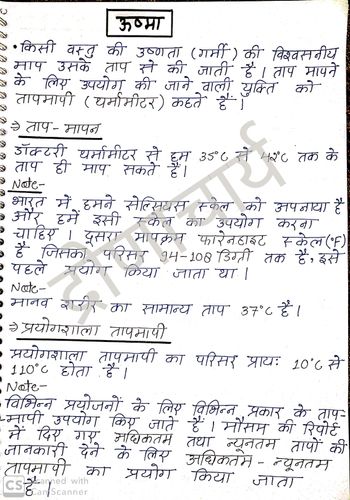 ऊष्मा
• किसी वस्तु की उष्णता (गर्मी) की विश्वसनीय
माप उसके ताप से की जाती है। ताप मापने
के लिए उपयोग की जाने वाली युक्ति को
तापमापी (थर्मामीटर) कहते हैं।
⇒ ताप - मापन
डॉक्टरी थर्मामीटर से हम 35°C से 42°C तक के
ताप ही माप सकते हैं।
Note-
भारत में हमने सेल्सियस स्केल को अपनाया है
और हमें इसी स्केल का उपयोग करना
चाहिए। दूसरा मापक्रम फारेनहाइट स्केल(°F)
है जिसका परिसर 94-108 डिग्री तक है, इसे
पहले प्रयोग किया जाता था।
Note-
मानव शरीर का सामान्य ताप 37°C है।
⇒ प्रयोगशाला तापमापी
प्रयोगशाला तापमापी का परिसर प्रायः 10°C से
110°C होता है।
Note-
विभिन्न प्रयोजनों के लिए विभिन्न प्रकार के ताप-
-मापी उपयोग किए जाते हैं। मौसम की रिपोर्ट
में दिए गए अधिकतम तथा न्यूनतम तापों की
जानकारी देने के लिए अधिकतम - न्यूनतम
तापमापी का प्रयोग किया जाता
है
द्रोणाचार्य
CS Scanned with
CamScanner